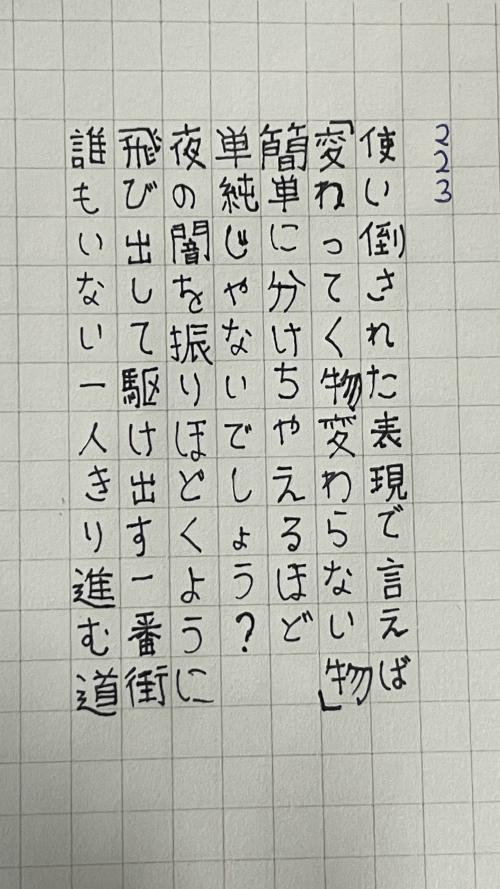 223
使い倒された表現で言えば
「変わってく物変わらない物」
簡単に分けちゃえるほど
単純じゃないでしょう?
夜の闇を振りほどくように
飛び出して駆け出す一番街
誰もいない一人きり進む道